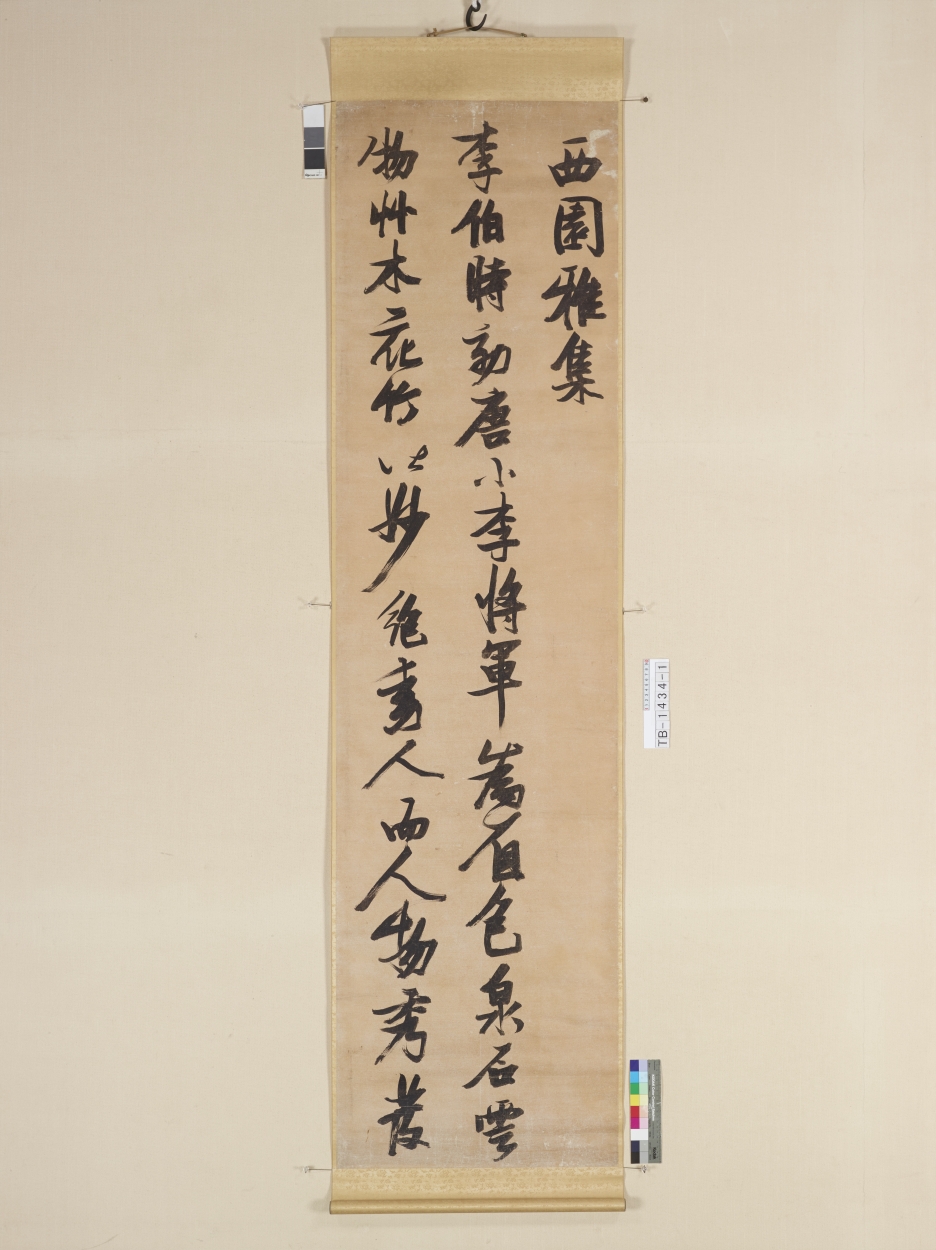 西園雅集
李伯時効唐小李將軍為着色泉石雲
物艸木花竹皆妙絶動人而人物秀發
TB-1434-1